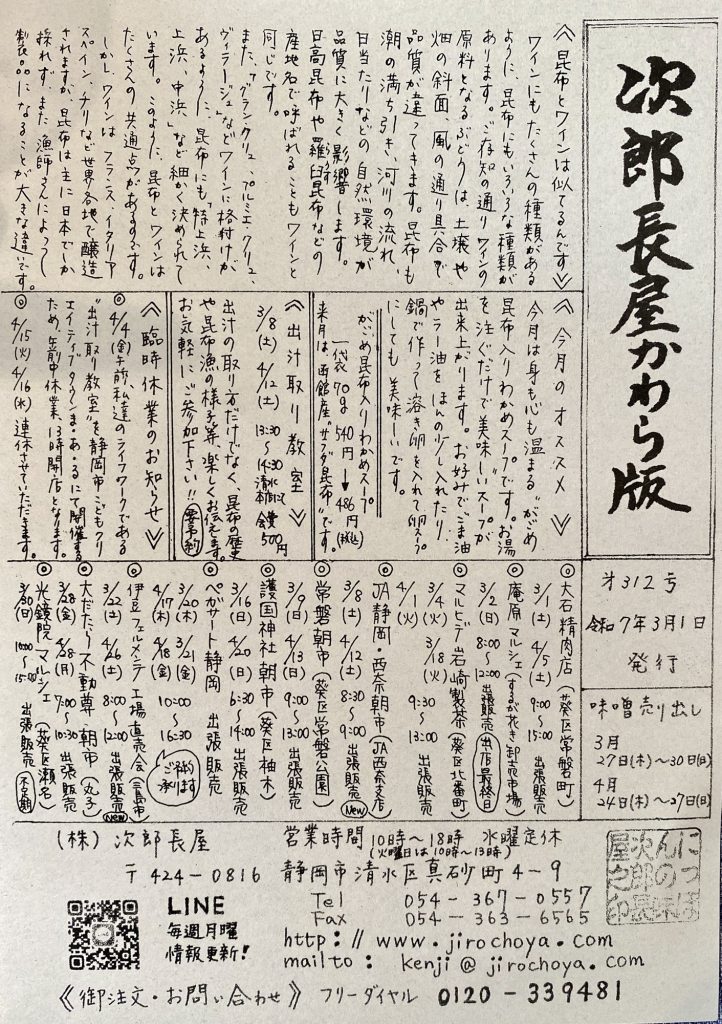 次郎長屋かわら版
才312号
令和7年3月1日
発行
味噌売り出し
3月
27日(木)〜30日(日)
4月
24日(木)〜27日(日)
≪昆布とワインは似てるんです≫
ワインにもたくさんの種類がある
ように、昆布にもいろいろな種類が
あります。ご存知の通りワインの
原料となるぶどうは、土壌や
畑の斜面、風の通り具合で
品質が違ってきます。昆布も
潮の満ち引き、河川の流れ、
日当たりなどの自然環境が
品質に大きく影響します。
日高昆布や羅臼昆布などの
産地名で呼ばれることもワインと
同じです。
また、「グランクリュ、プルミエクリュ、
ヴィラージュ」などワインに格付けが
あるように、昆布にも「特上浜、
上浜、中浜」など細かく決められて
います。このように、昆布とワインは
たくさんの共通点があるのです。
しかし、ワインはフランス、イタリア
スペイン、チリなど世界各地で醸造
されますが、昆布は主に日本でしか
採れず、また漁師さんによって
製品になることが大きな違いです。
≪今月のオススメ≫
今月は身も心も温まる“がごめ
昆布入りわかめスープ”です。お湯
を注ぐだけで美味しいスープが
出来上がります。お好みでごま油
やラー油をほんの少し入れたり、
鍋で作って溶き卵を入れて卵スープ
にしても美味しいです。
がごめ昆布入りわかめスープ
一袋70g 540円→486円(税込)
来月は、函館産“サブ昆布”です。
≪出汁取り教室≫
3/8(土) 4/12(土) 13:30〜14:30 清水清本店にて 会費500円
出汁の取り方だけでなく、昆布の歴史
や昆布漁の様子等、楽しくお伝えします。
お気軽にご参加下さい!! 要予約
≪臨時休業のお知らせ≫
◎4/4(金)午前、私達のライフワークである
“出汁取り教室”を静岡市こどもクリ
エイティブタウンま・あ・るにて開催する
ため、午前中休業、13時開店となります。
◎4/15(火) 4/16(水) 連休させていただきます。
◎大石精肉店(葵区常磐町)
3/1(土) 4/5(土) 9:00〜15:00 出張販売
◎庵原マルシェ(するが花き卸売市場)
3/2(日) 8:00〜12:00 出張販売 出店最終日
◎マルヒデ岩崎製茶(葵区北番町)
3/4(火) 3/18(火) 9:30〜13:00 出張販売
4/1(火)
◎JA静岡・西奈朝市(JA西奈支店)
3/8(土) 4/12(土) 8:30〜9:00 出張販売 New
◎常磐朝市(葵区常磐公園)
3/9(日) 4/13(日) 9:00〜13:00 出張販売
◎護国神社朝市(葵区柚木)
3/16(日) 4/20(日) 6:30〜14:00 出張販売
◎ペガサート静岡 出張販売
3/20(木) 3/21(金) 10:00〜16:30
4/17(木) 4/18(金)
ご予約承ります
◎伊豆フェルメンテ工場直売会(三島市)
3/22(土) 4/26(土) 8:00〜12:00 出張販売 New
◎大だたら不動尊朝市(丸子)
3/28(金) 4/28(月) 7:00〜10:30 出張販売
◎光鏡院マルシェ(葵区瀬名)
3/30(日) 10:00〜15:00 出張販売 不定期
(株)次郎長屋
営業時間 10時〜18時 水曜定休
(火曜日は10時〜13時)
〒424-0816 静岡市清水区真砂町4-9
Tel 054-367-0557
Fax 054-363-6565
http://www.jirochoya.com
mailto: kenji@jirochoya.com
LINE
毎週月曜
情報更新!
にっぽ
んの味
次郎長
屋之印
≪御注文・お問い合わせ≫ フリーダイヤル 0120-339481